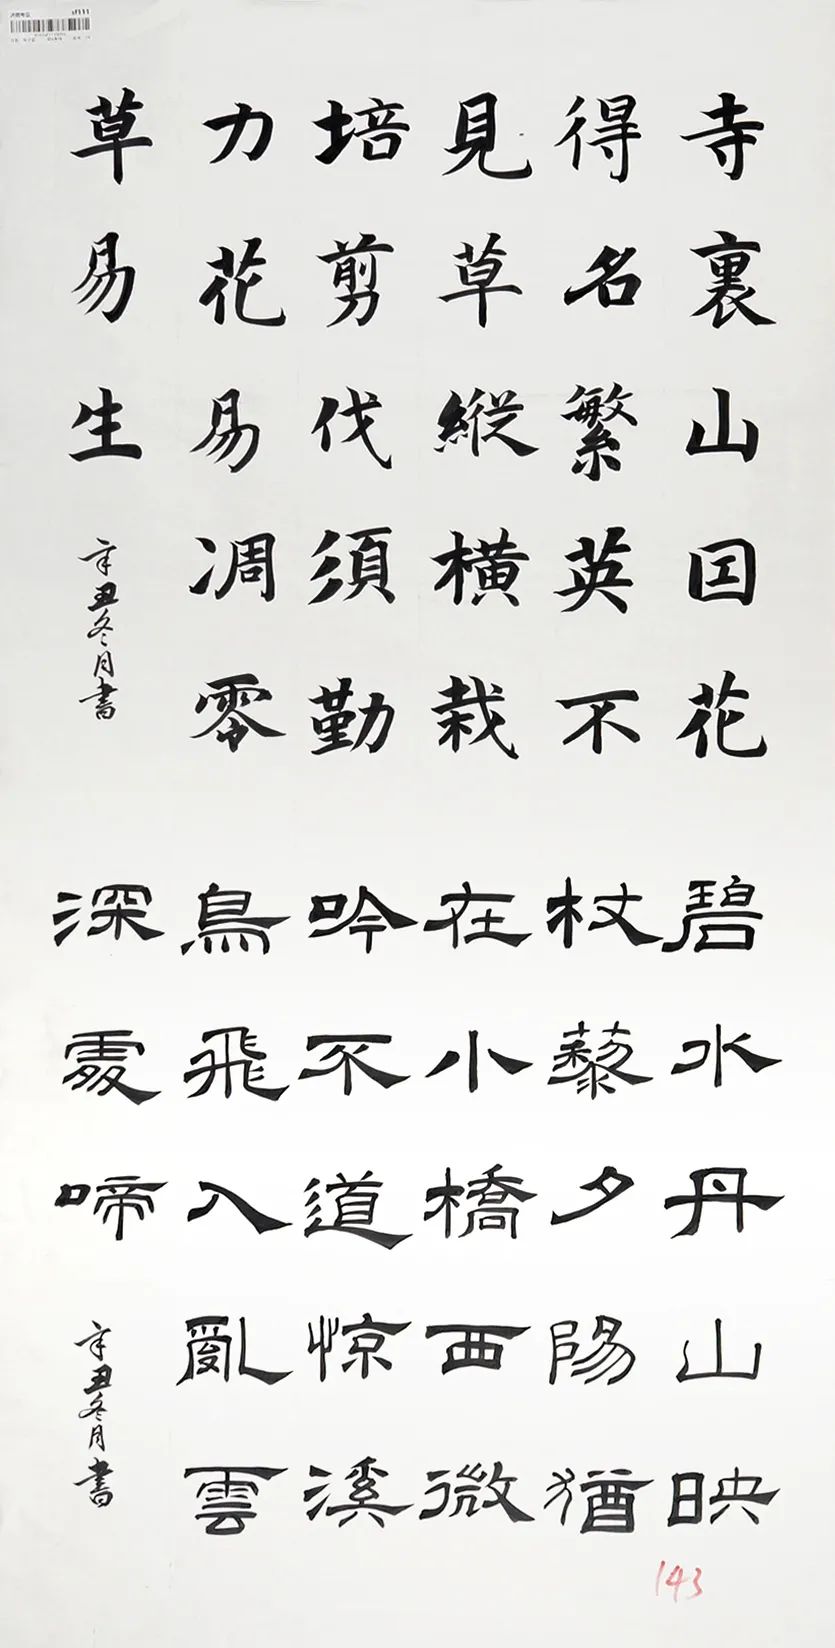 寺裏山因花
得名繁英不
見草縱橫栽
培剪伐須勤
力花易凋零
草易生
辛丑冬月書
碧水丹山映
杖藜夕陽猶
在小橋西微
吟不道惊溪
鳥飛入亂雲
深處啼
辛丑冬月書
143